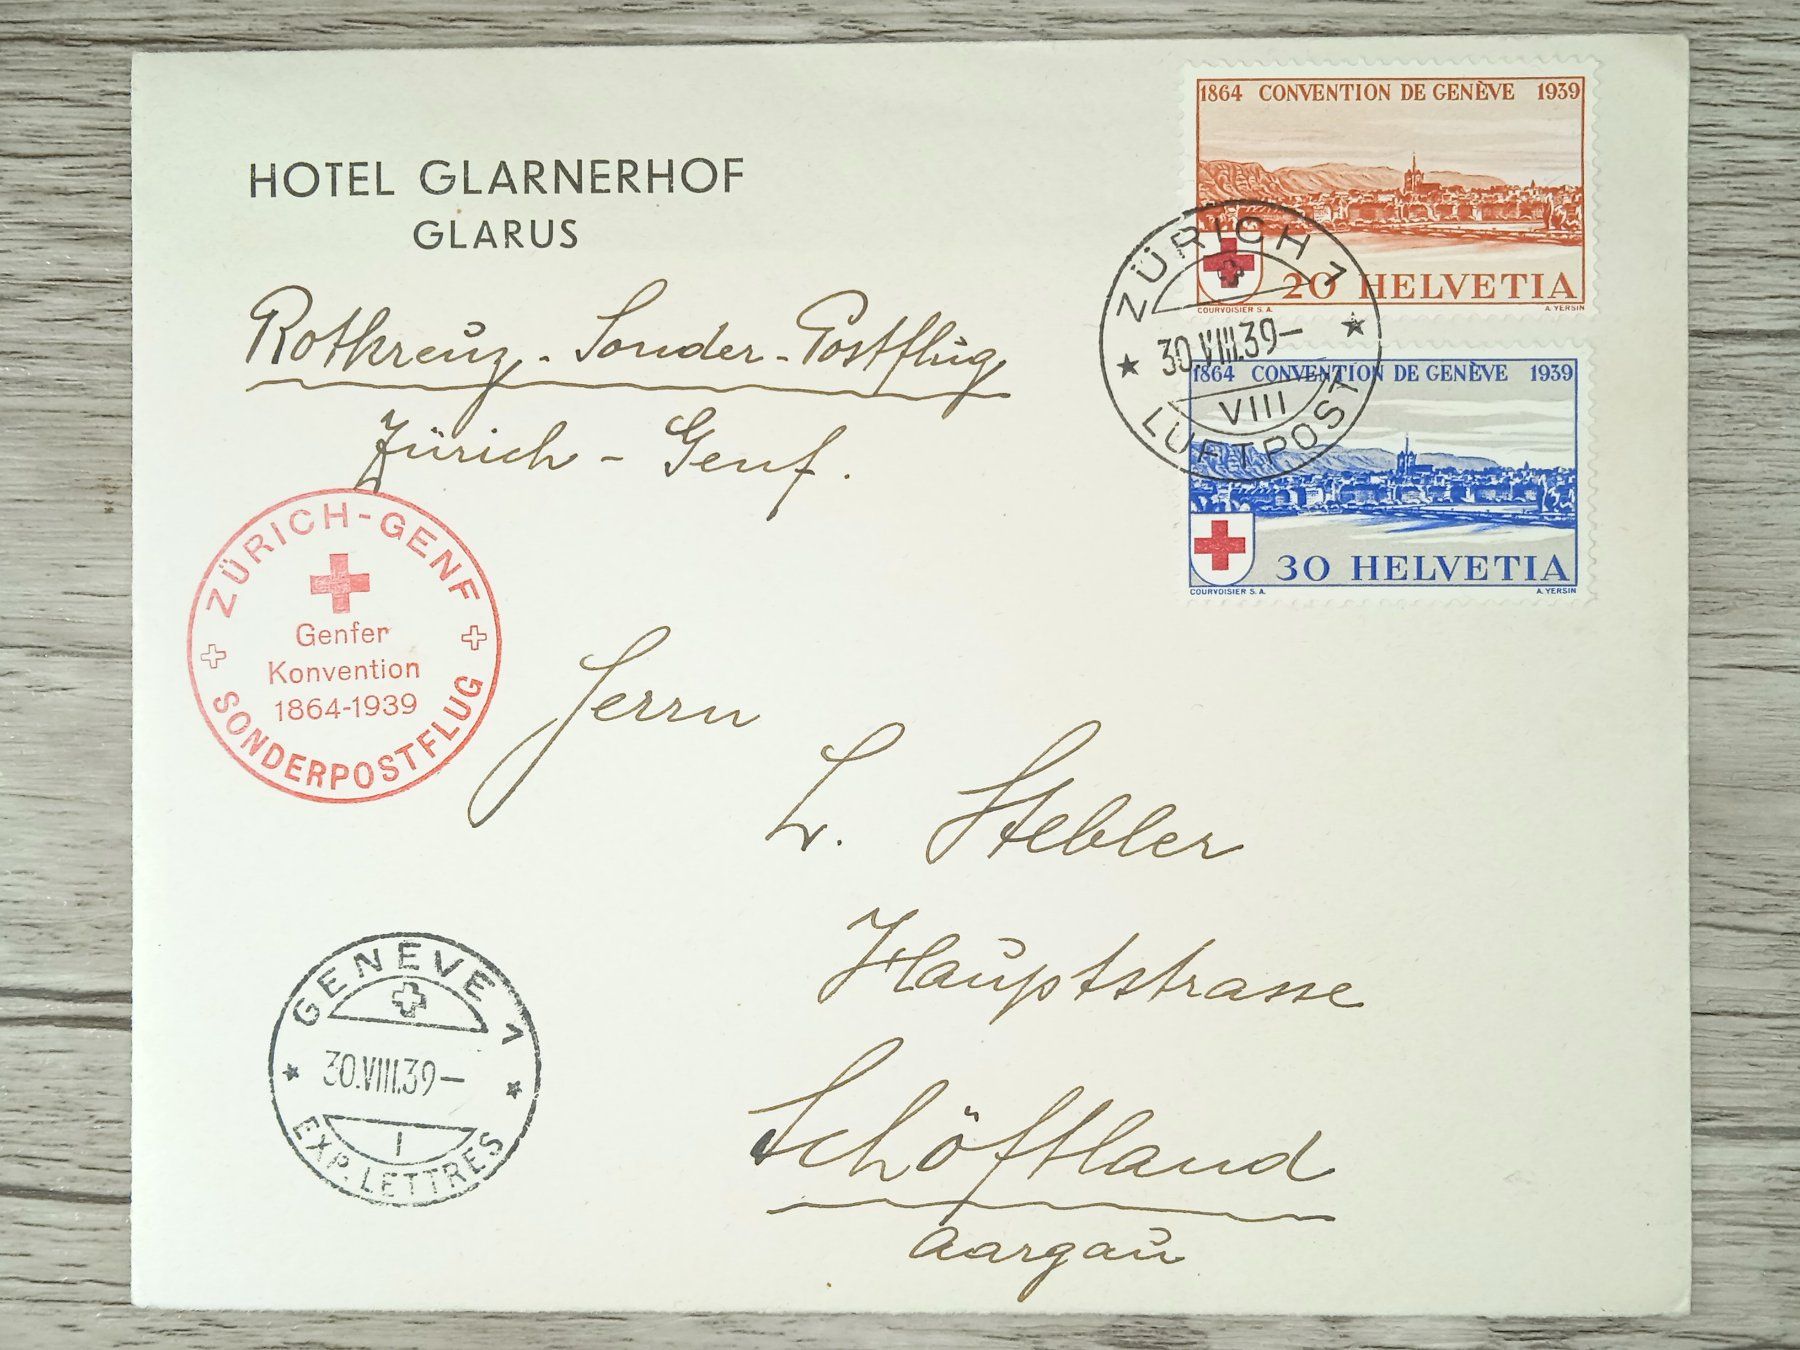 HOTEL GLARNERHOF
GLARUS
Rotkreuz-Sonder-Postflug
Zürich - Genf.
1864 CONVENTION DE GENÈVE 1939
20 HELVETIA
COURVOISIER S. A. A. YERSIN
ZÜRICH 1
30.VIII.39–
VIII
LUFTPOST
1864 CONVENTION DE GENÈVE 1939
30 HELVETIA
COURVOISIER S. A. A. YERSIN
ZÜRICH-GENF
Genfer
Konvention
1864-1939
SONDERPOSTFLUG
Herrn
L. Stebler
Hauptstrasse
Schöftland
Aargau
GENÈVE 1
30.VIII.39–
I
EXP. LETTRES